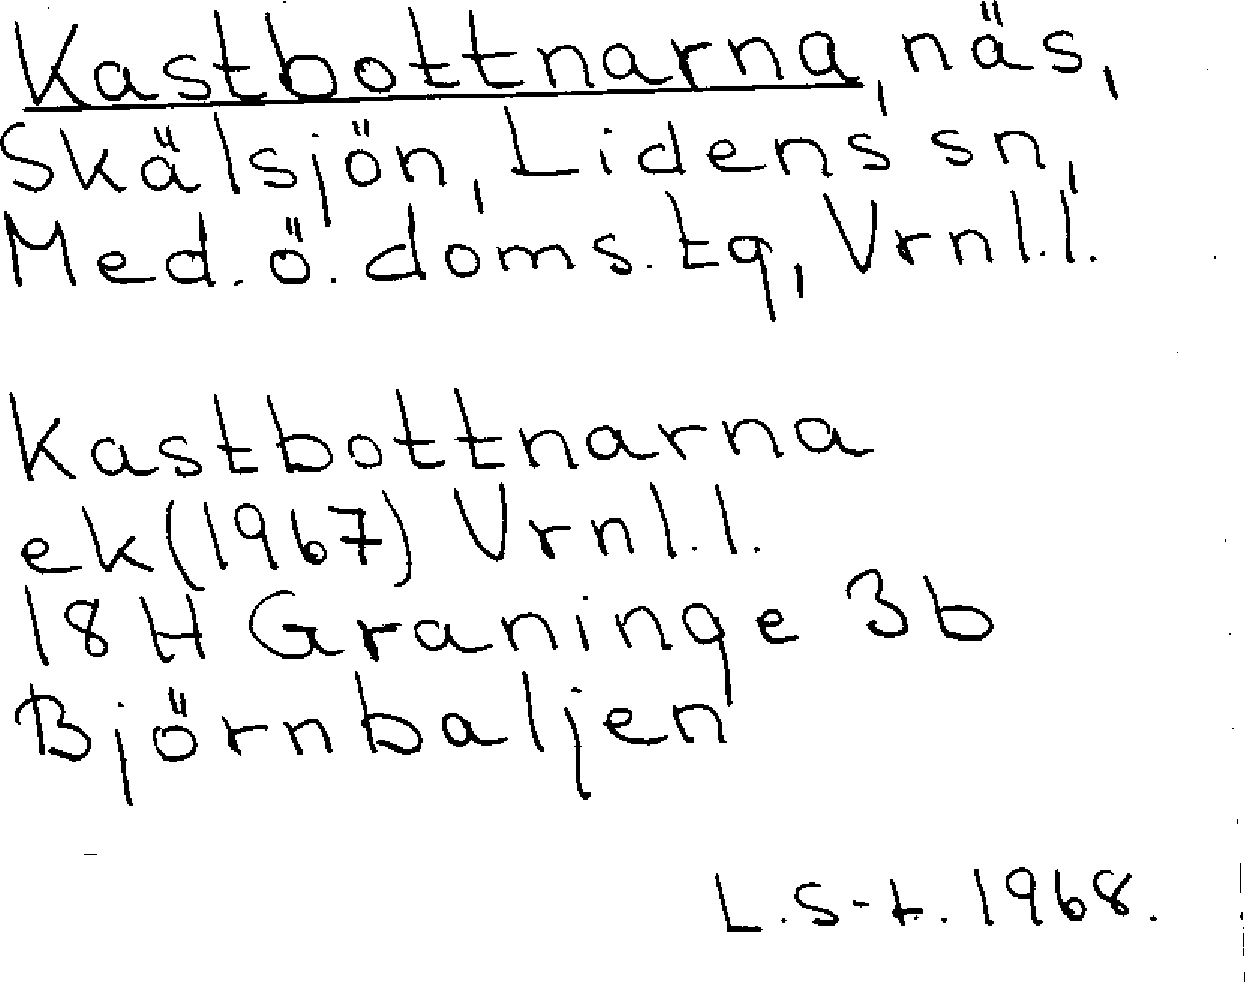 Kastbottnarna, näs,
Skälsjön, Lidens sn,
Med. ö. doms. tg, Vrnl.l.
Kastbottnarna
ek (1967) Vrnl.l.
18 H Graninge 3b
Björnbaljen
L. S-t. 1968.